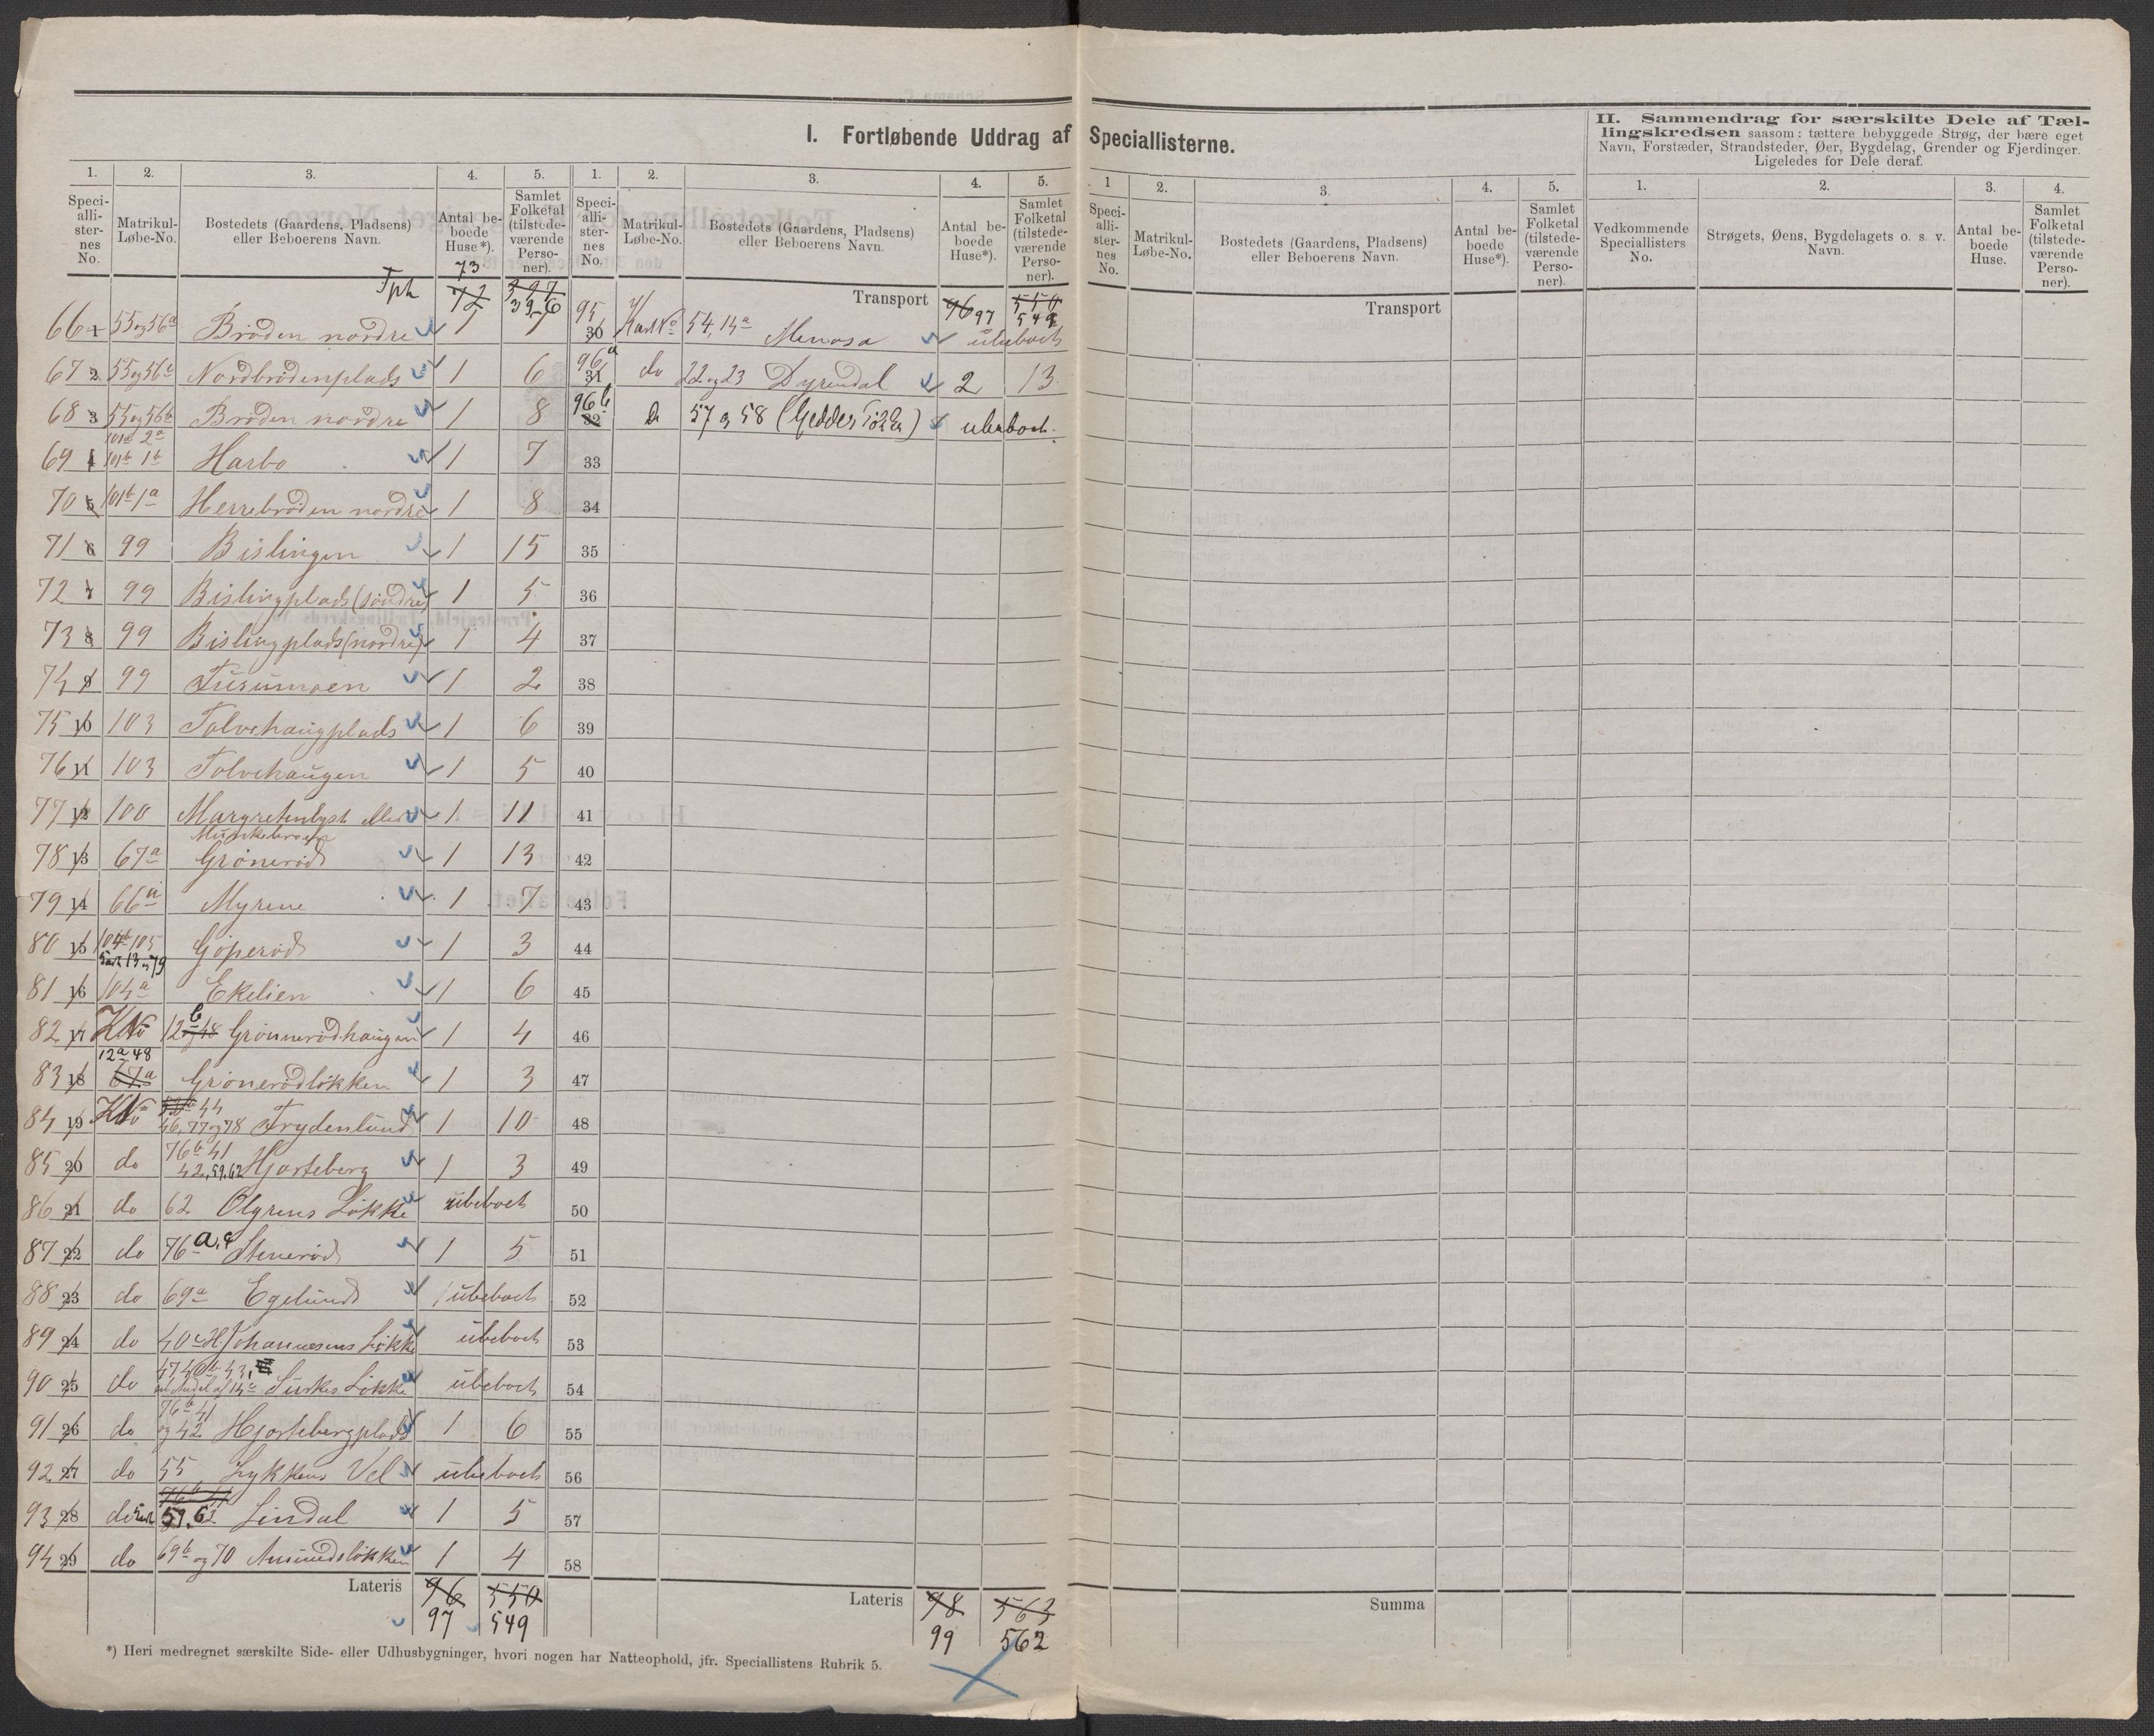 I. Fortløbende Uddrag af Speciallisterne.
II. Sammendrag for særskilte Dele af Tællingskredsen saasom: tættere bebyggede Strøg, der bære eget
Navn, Forstæder, Strandsteder, Øer, Bygdelag, Grender og Fjerdinger.
Ligeledes for Dele deraf.
1. 2. 3. 4. 5.
Speciallisternes No. Matrikul-Løbe-No. Bostedets (Gaardens, Pladsens) eller Beboerens Navn. Antal beboede Huse*). Samlet Folketal (tilstedeværende Personer).
Tph 73 72 397 396
66 1 55 og 56a Bröden nordre 1 7
67 2 55 og 56c Nordbrödenplads 1 6
68 3 55 og 56b Bröden nordre 1 8
69 4 101a 2a 101b 1b Harbo 1 7
70 5 101b 1a Herrebröden nordre 1 8
71 6 99 Bislingen 1 15
72 7 99 Bislingplads (söndre) 1 5
73 8 99 Bislingplads (nordre) 1 4
74 9 99 Fürümoen 1 2
75 10 103 Tolvehaugplads 1 6
76 11 103 Tolvehaugen 1 5
77 12 100 Margretenlyst eller Munkebroen 1 11
78 13 67a Gröneröd 1 13
79 14 66a Myrene 1 7
80 15 104b 105 13 og 79 Göperöd 1 3
81 16 104a Ekelien 1 6
82 17 KNo 12b 48 Grönnerödhaugen 1 4
83 18 12a 48 67a Grönerödlökken 1 3
84 19 KNo 44 46, 77 og 78 Frydenlund 1 10
85 20 do 76b 41 42, 59, 62 Hjorteberg 1 3
86 21 do 62 Olgrens Lökke ubeboet
87 22 do 76a,c Steneröd 1 5
88 23 do 69a Egelund ubeboet
89 24 do 40c H. Johannesens Lökke ubeboet
90 25 do 47 40b 43, Andel af 14a Lökke ubeboet
91 26 do 76b 41 og 42 Hjortebergplads 1 6
92 27 do 55 Lykkens Vel ubeboet
93 28 do 59, 62 Lindal 1 5
94 29 do 69b og 70 Amundslökken 1 4
Lateris 96 550
97 549
*) Heri medregnet særskilte Side- eller Udhusbygninger, hvori nogen har Natteophold, jfr. Speciallistens Rubrik 5.
1. 2. 3. 4. 5.
Speciallisternes No. Matrikul-Løbe-No. Bostedets (Gaardens, Pladsens) eller Beboerens Navn. Antal beboede Huse*). Samlet Folketal (tilstedeværende Personer).
Transport 96 97 550 549
95 30 Kart No 54, 14a Menosa ubeboet
96a 31 do 22 og 23 Dyrendal 2 13
96b 32 Do 57 og 58 (Geddes Lökke) ubeboet
33
34
35
36
37
38
39
40
41
42
43
44
45
46
47
48
49
50
51
52
53
54
55
56
57
58
Lateris 98 563
99 562
1 2. 3. 4. 5.
Speciallisternes No. Matrikul-Løbe-No. Bostedets (Gaardens, Pladsens) eller Beboerens Navn. Antal beboede Huse*). Samlet Folketal (tilstedeværende Personer).
Transport
Summa
1. 2. 3. 4.
Vedkommende Speciallisters No. Strøgets, Øens, Bygdelagets o. s. v. Navn. Antal beboede Huse. Samlet Folketal (tilstedeværende Personer).